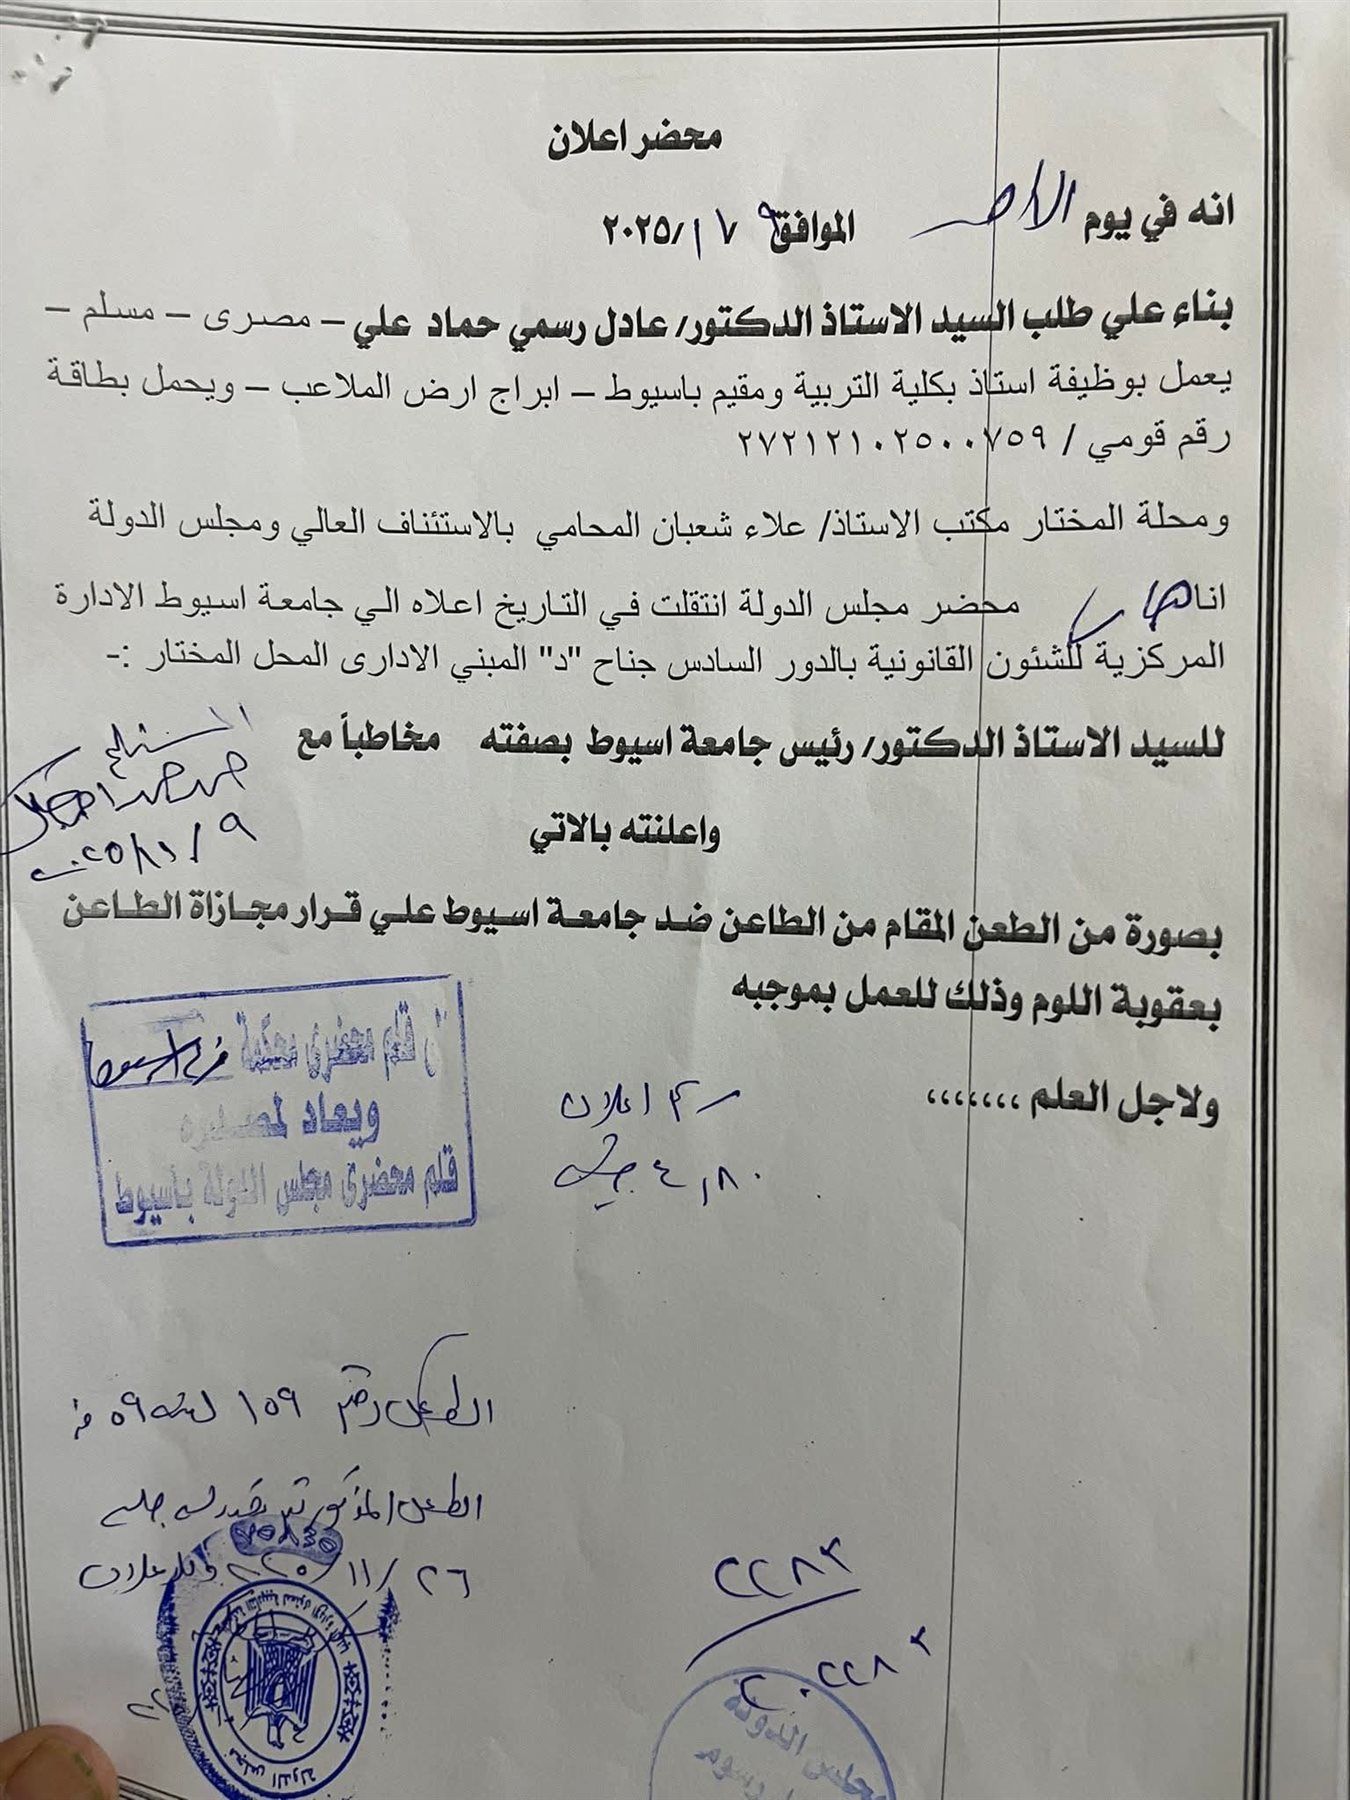 محضر اعلان
انه في يوم الاحد الموافق ٩ / ١١ /٢٠٢٥
بناء علي طلب السيد الاستاذ الدكتور/ عادل رسمي حماد علي – مصرى – مسلم –
يعمل بوظيفة استاذ بكلية التربية ومقيم باسيوط – ابراج ارض الملاعب – ويحمل بطاقة
رقم قومي / ٢٧٢١٢١٠٢٥٠٠٧٥٩
ومحلة المختار مكتب الاستاذ/ علاء شعبان المحامي بالاستئناف العالي ومجلس الدولة
انا محضر مجلس الدولة انتقلت في التاريخ اعلاه الي جامعة اسيوط الادارة
المركزية للشئون القانونية بالدور السادس جناح "د" المبني الادارى المحل المختار :-
للسيد الاستاذ الدكتور/ رئيس جامعة اسيوط بصفته مخاطباً مع
المستلم
واعلنته بالاتي
٩ / ١١ / ٢٠٢٥
بصورة من الطعن المقام من الطاعن ضد جامعة اسيوط علي قرار مجازاة الطاعن
بعقوبة اللوم وذلك للعمل بموجبه
قلم محضرى محكمة
ويعاد لمصدره
قلم محضرى مجلس الدولة بأسيوط
ولاجل العلم ،،،،،،،
رسم اعلان
٤,٨٠ جنيه
الطعن رقم ١٥٩ لسنه ٥٩ ق
الطعن المذكور تم تحديد له جلسه
٢٦ / ١١ / ٢٠٢٥ وللاعلان
٢٢٨٣
٢٠٢٢٨٣
مجلس الدولة
رسوم
مجلس الدولة